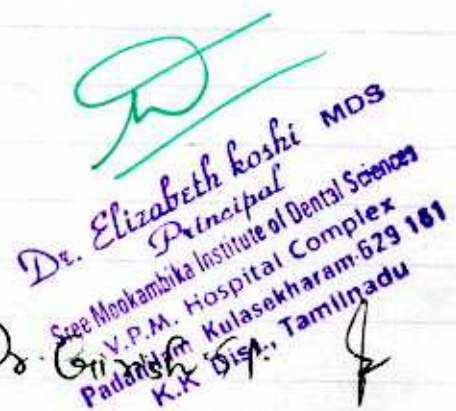 Dr. Elizabeth koshi MDS
Principal
Sree Mookambika Institute of Dental Sciences
V.P.M. Hospital Complex
Padanilam Kulasekharam-629 161
K.K Dist., Tamilnadu
Dr.